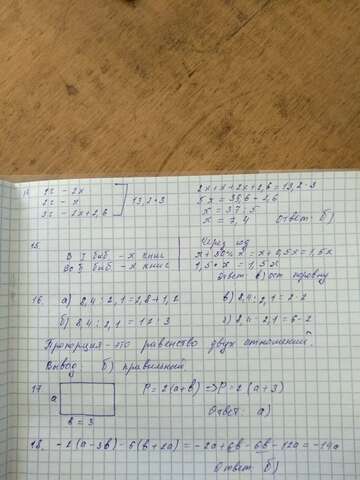 1с - 2х
2с - х
3с - 2х+2,6
13,2·3
2х+х+2х+2,6=13,2·3
5х = 39,6 - 2,6
х = 37:5
х = 7,4 Ответ: б)
15.
В I биб - х книг
Во II биб - х книг
Через год
х+50%х = х+0,5х=1,5х
1,5·х = 1,5х
Ответ: в) ост. поровну
16. а) 8,4:2,1=2,8+1,2
в) 8,4:2,1=2·2
б) 8,4:2,1=12:3
г) 8,4:2,1=6-2
Пропорция-это равенство двух отношений.
Вывод б) правильный
17.
а
в = 3
Р=2(а+в) => Р=2(а+3)
Ответ: а)
18. -2(а-3в)-6(в+2а)=-2а+6в-6в-12а=-14а
Ответ: б)